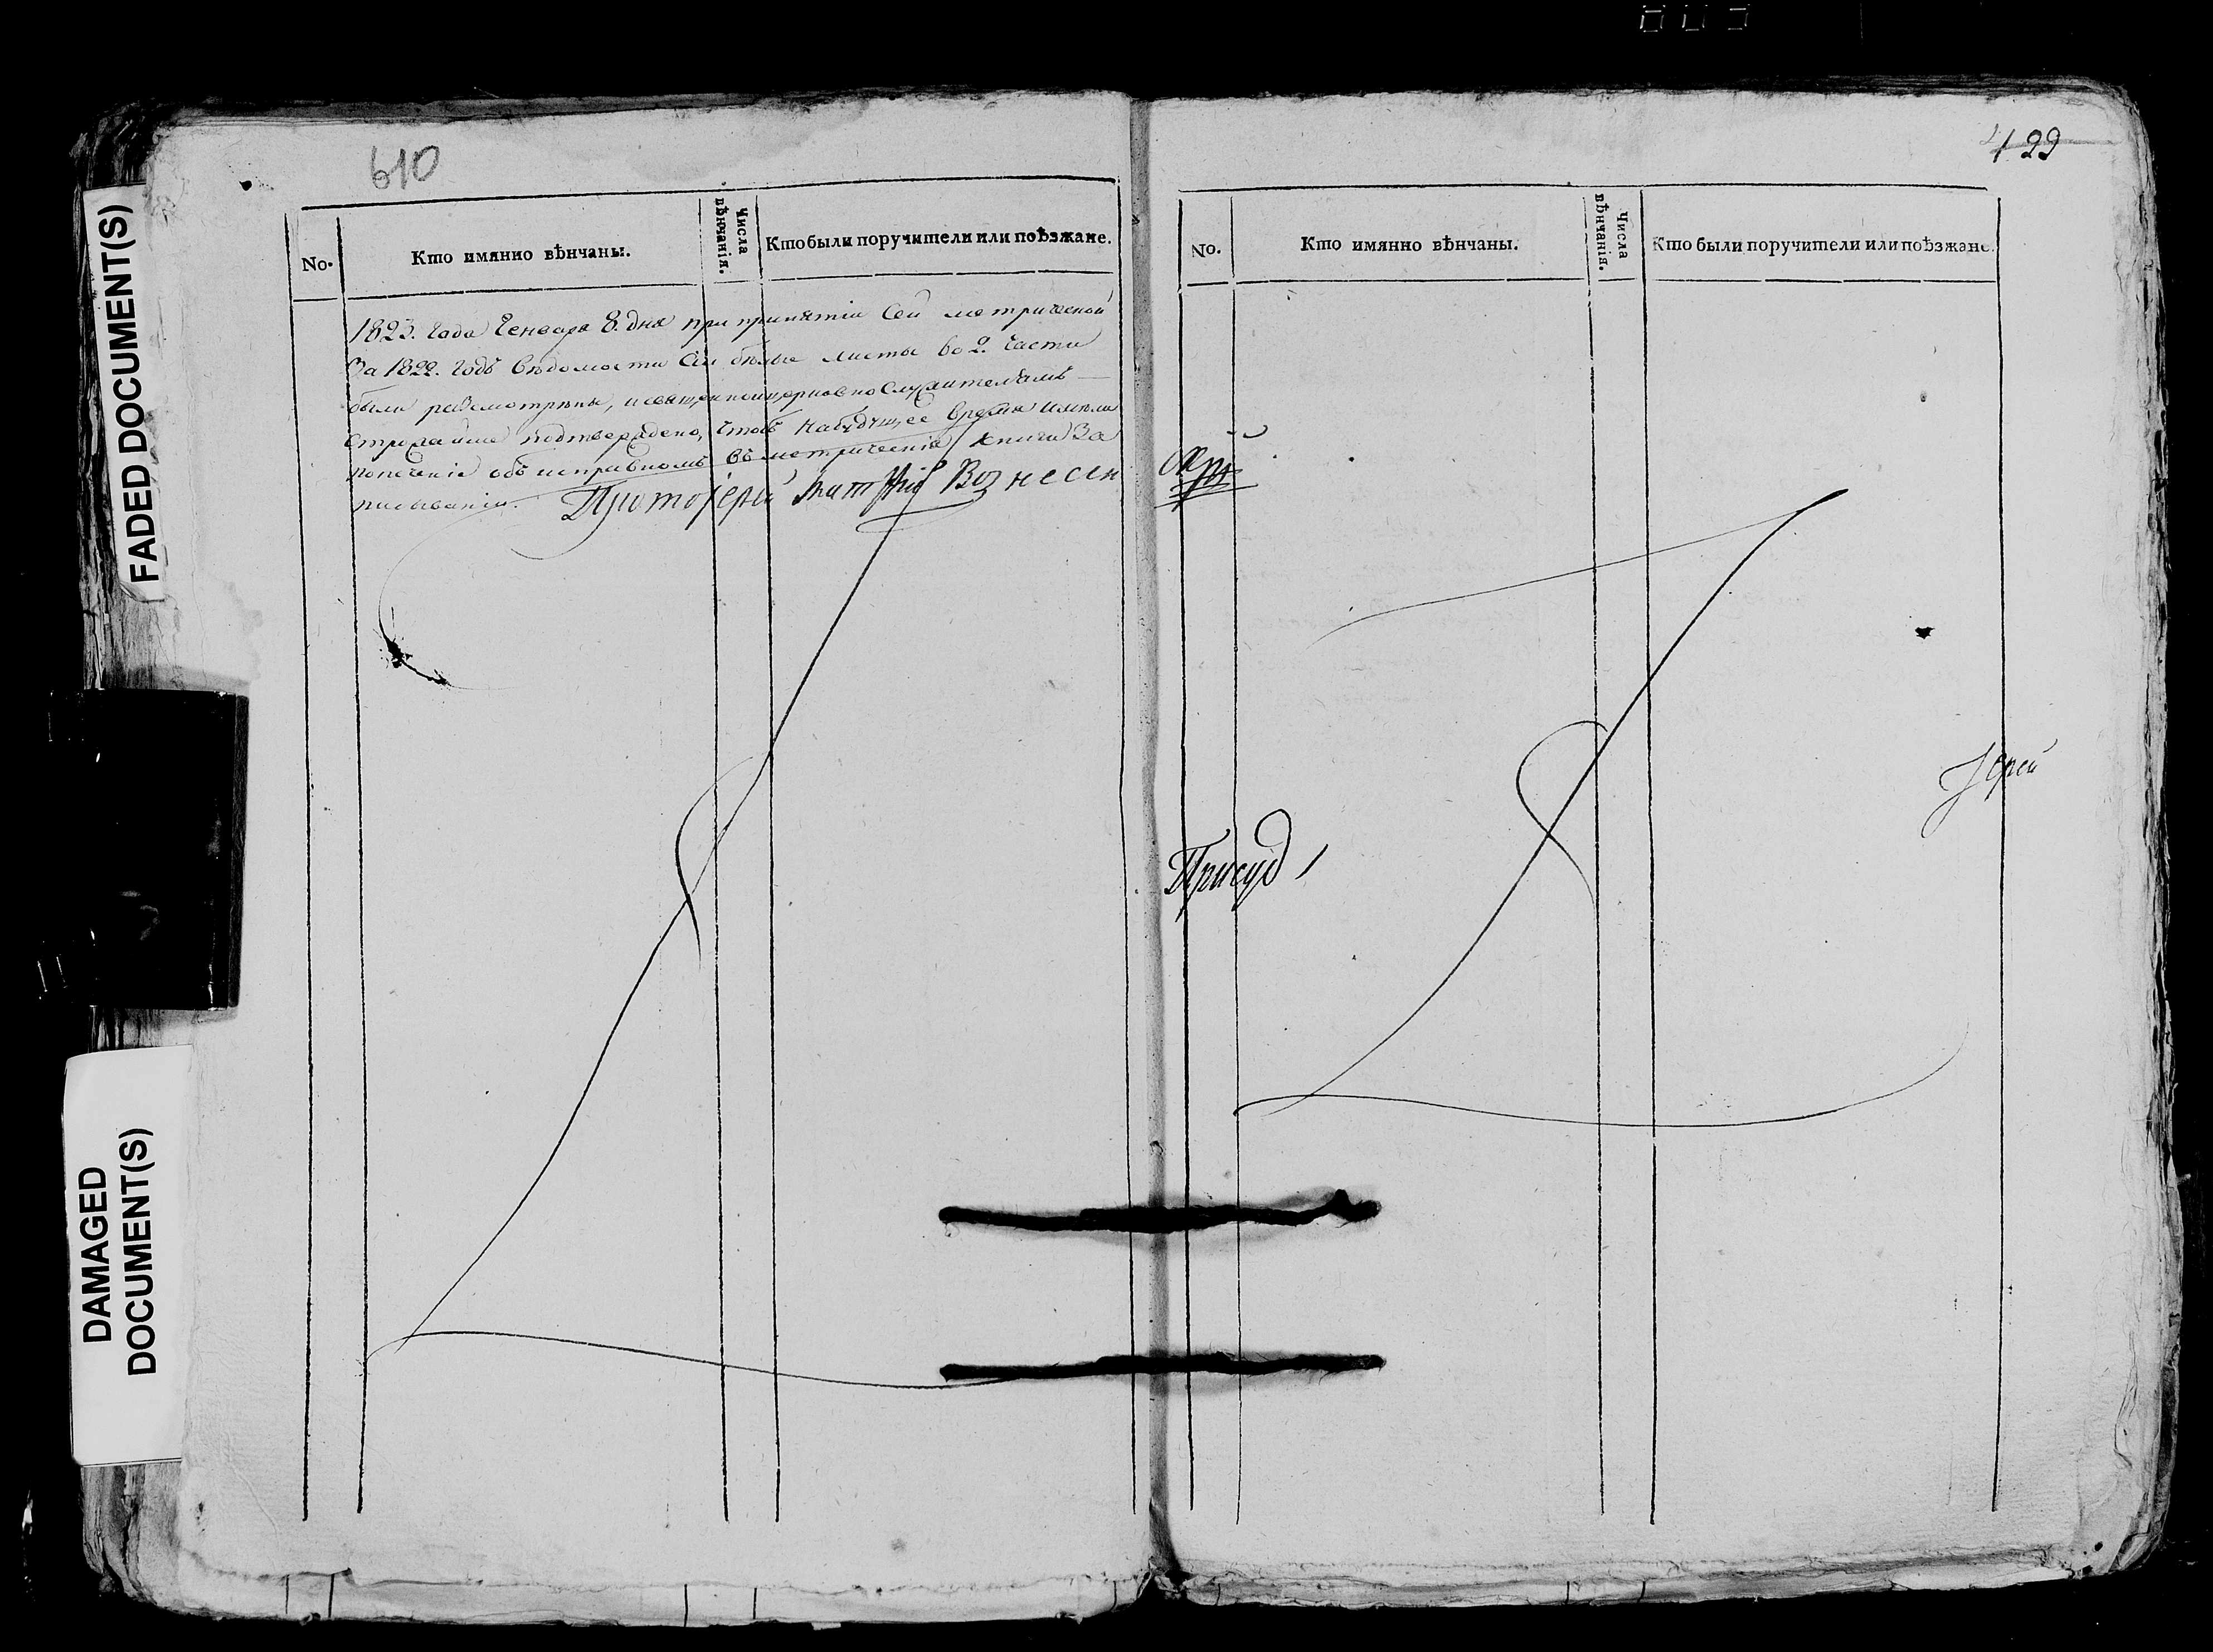 610
No.
Кто имянно вѣнчаны.
Числа
вѣнчанія.
Кто были поручители или поѣзжане.
1823. Года Генваря 8. дня при принятіи Сей метрической
За 1822. Годъ Вѣдомости Сіи бѣлые листы во 2. Части
были разсмотрѣны, и священноицерковнослужителямъ
строжайше подтверждено, чтобъ на будущее время имѣли
попеченіе объ исправномъ въ метрическія книги За
писываніи. Протоіерей Вознесен
422
No.
Кто имянно вѣнчаны.
Числа
вѣнчанія.
Кто были поручители или поѣзжане.
Іерей
Присуд
FADED DOCUMENT(S)
DAMAGED
DOCUMENT(S)